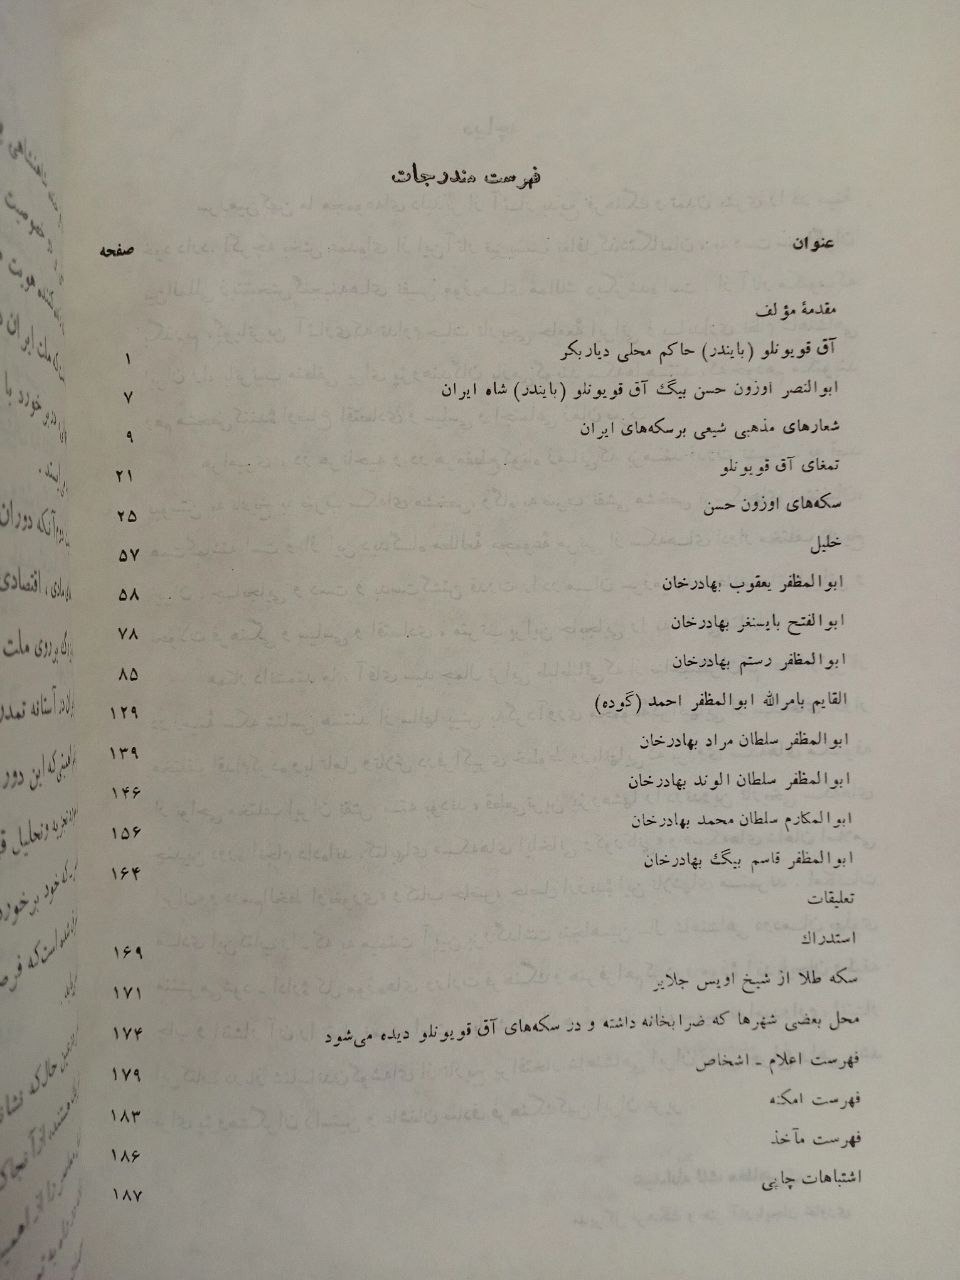 فهرست مندرجات
عنوان صفحه
مقدمهٔ مؤلف
آق قویونلو (بایندر) حاکم محلی دیاربکر ۱
ابوالنصر اوزون حسن بیگ آق قویونلو (بایندر) شاه ایران ۷
شعارهای مذهبی شیعی برسکه‌های ایران ۹
تمغای آق قویونلو ۲۱
سکه‌های اوزون حسن ۲۵
خلیل ۵۷
ابوالمظفر یعقوب بهادرخان ۵۸
ابوالفتح بایسنغر بهادرخان ۷۸
ابوالمظفر رستم بهادرخان ۸۵
القایم بامرالله ابوالمظفر احمد (گوده) ۱۲۹
ابوالمظفر سلطان مراد بهادرخان ۱۳۹
ابوالمظفر سلطان الوند بهادرخان ۱۴۶
ابوالمکارم سلطان محمد بهادرخان ۱۵۶
ابوالمظفر قاسم بیگ بهادرخان ۱۶۴
تعلیقات
استدراك ۱۶۹
سکه طلا از شیخ اویس جلایر ۱۷۱
محل بعضی شهرها که ضرابخانه داشته و در سکه‌های آق قویونلو دیده می‌شود ۱۷۴
فهرست اعلام ـ اشخاص ۱۷۹
فهرست امکنه ۱۸۳
فهرست مآخذ ۱۸۶
اشتباهات چاپی ۱۸۷
هویت
ملت ایران
خورد با
آنکه دوران
، اقتصادی
روی ملت
در آستانه تمدن
که این دور
تجزیه و تحلیل
که خود برخورد
است که
حال که